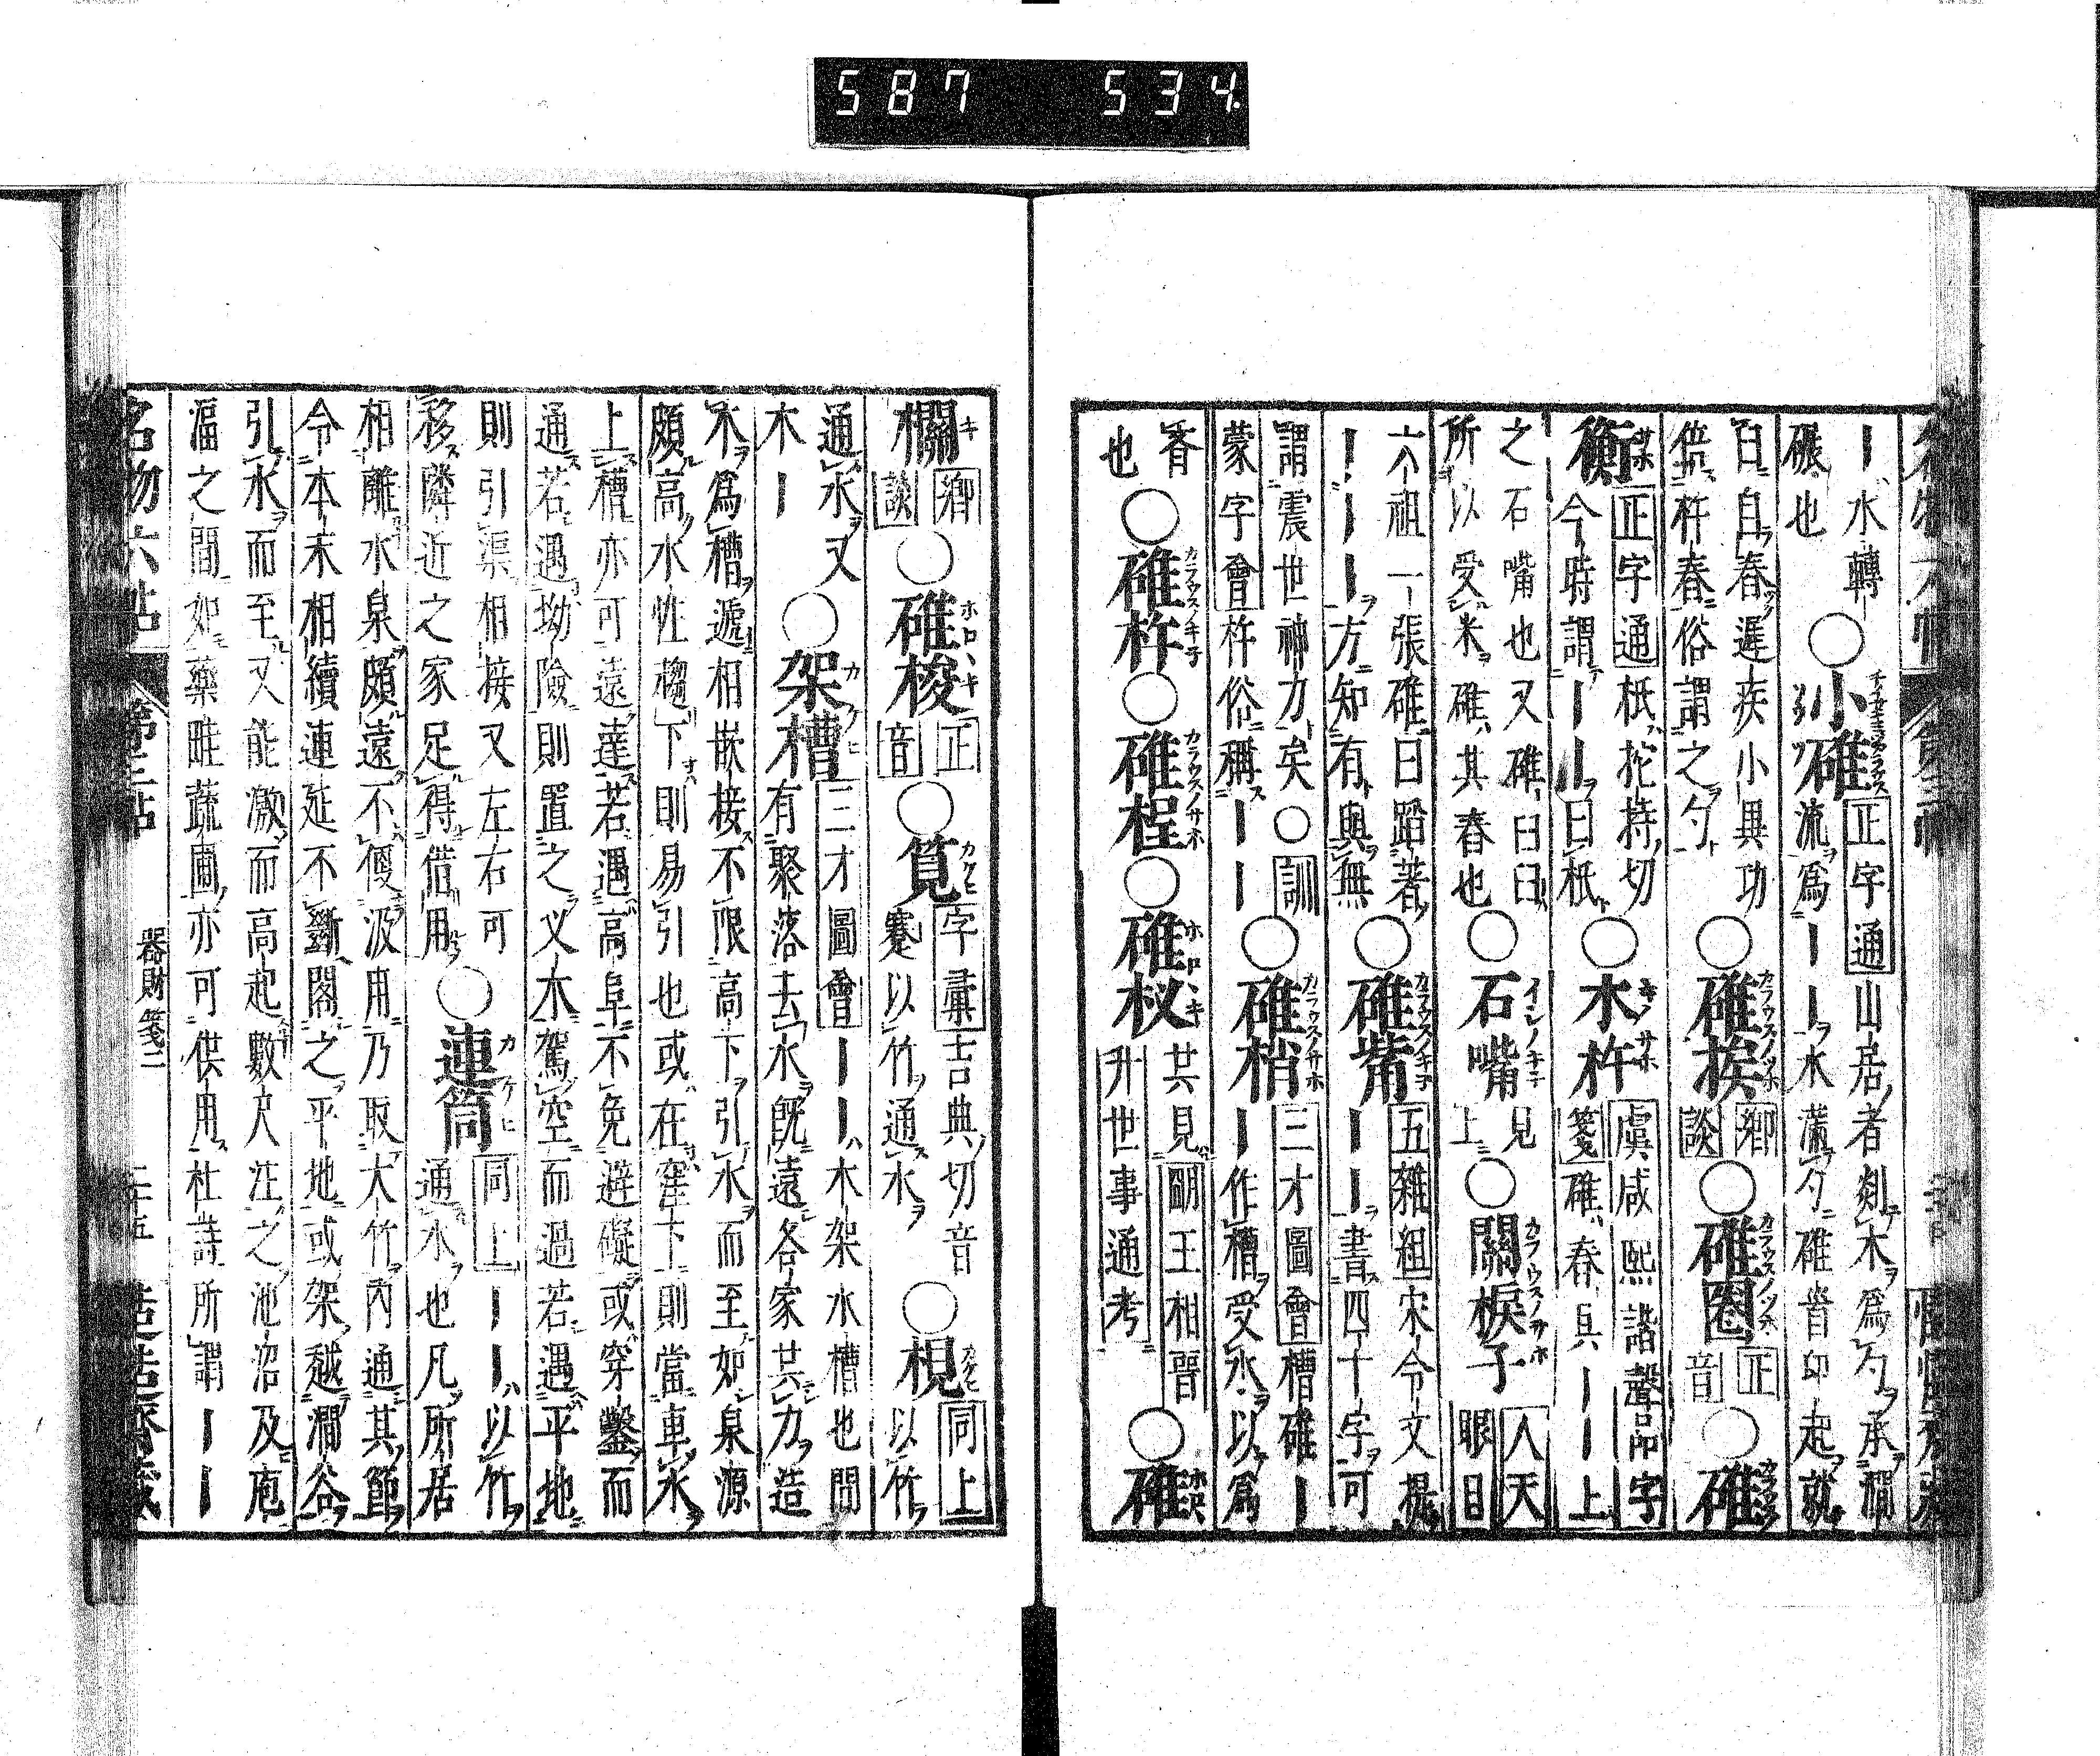 587 534
ー水轉
碾也
○小碓
正字通山居者剡木爲勺承澗
流爲ーー水滿勺碓首卬起就
臼自舂遲疾小異功
倍杵舂俗謂之勺
○碓桋 鄉談 ○碓圈 正音 ○碓
衡
正字通柢挓持切
今時謂ーー曰柢
○木杵
虞咸熙諧聲品字
箋碓舂具ーー上
之石嘴也又碓臼臼
所以受米碓其舂也
○石嘴 見上 ○關棙子 人天眼目
六祖一張碓曰踏著
ーーーー方知有與無
○碓觜
五雜組宋令文提
ーー書四十字可
謂震世神力矣○訓
蒙字會杵俗稱ーー
○碓梢
三才圖會槽碓ー
ー作槽受水以爲
舂也
○碓杵○碓桯○碓杈
共見王相晉
升世事通考
○碓
欄 鄉談 ○碓梭 正音 ○筧
字彙吉典切音
蹇以竹通水
○梘
同上
以竹
通水又
木ー
○架槽
三才圖會ーー木架水槽也間
有聚落去水既遠各家共力造
木爲槽遞相嵌接不限高下引水而至如泉源
頗高水性趨下則易引也或在窪下則當車水
上槽亦可遠達若遇高阜不免避礙或穿鑿而
通若遇坳險則置之义木駕空而過若遇平地
則引渠相接又左右可
移隣近之家足得借用
○連筒
同上ーー以竹
通水也凡所居
相離水泉頗遠不便汲用乃取大竹內通其節
令本末相續連延不斷閣之平地或架越澗谷
引水而至又能激而高起數尺注之池沼及庖
湢之間如藥畦蔬圃亦可供用杜詩所謂ーー
名物六帖 第三帖 器財箋二 二十五